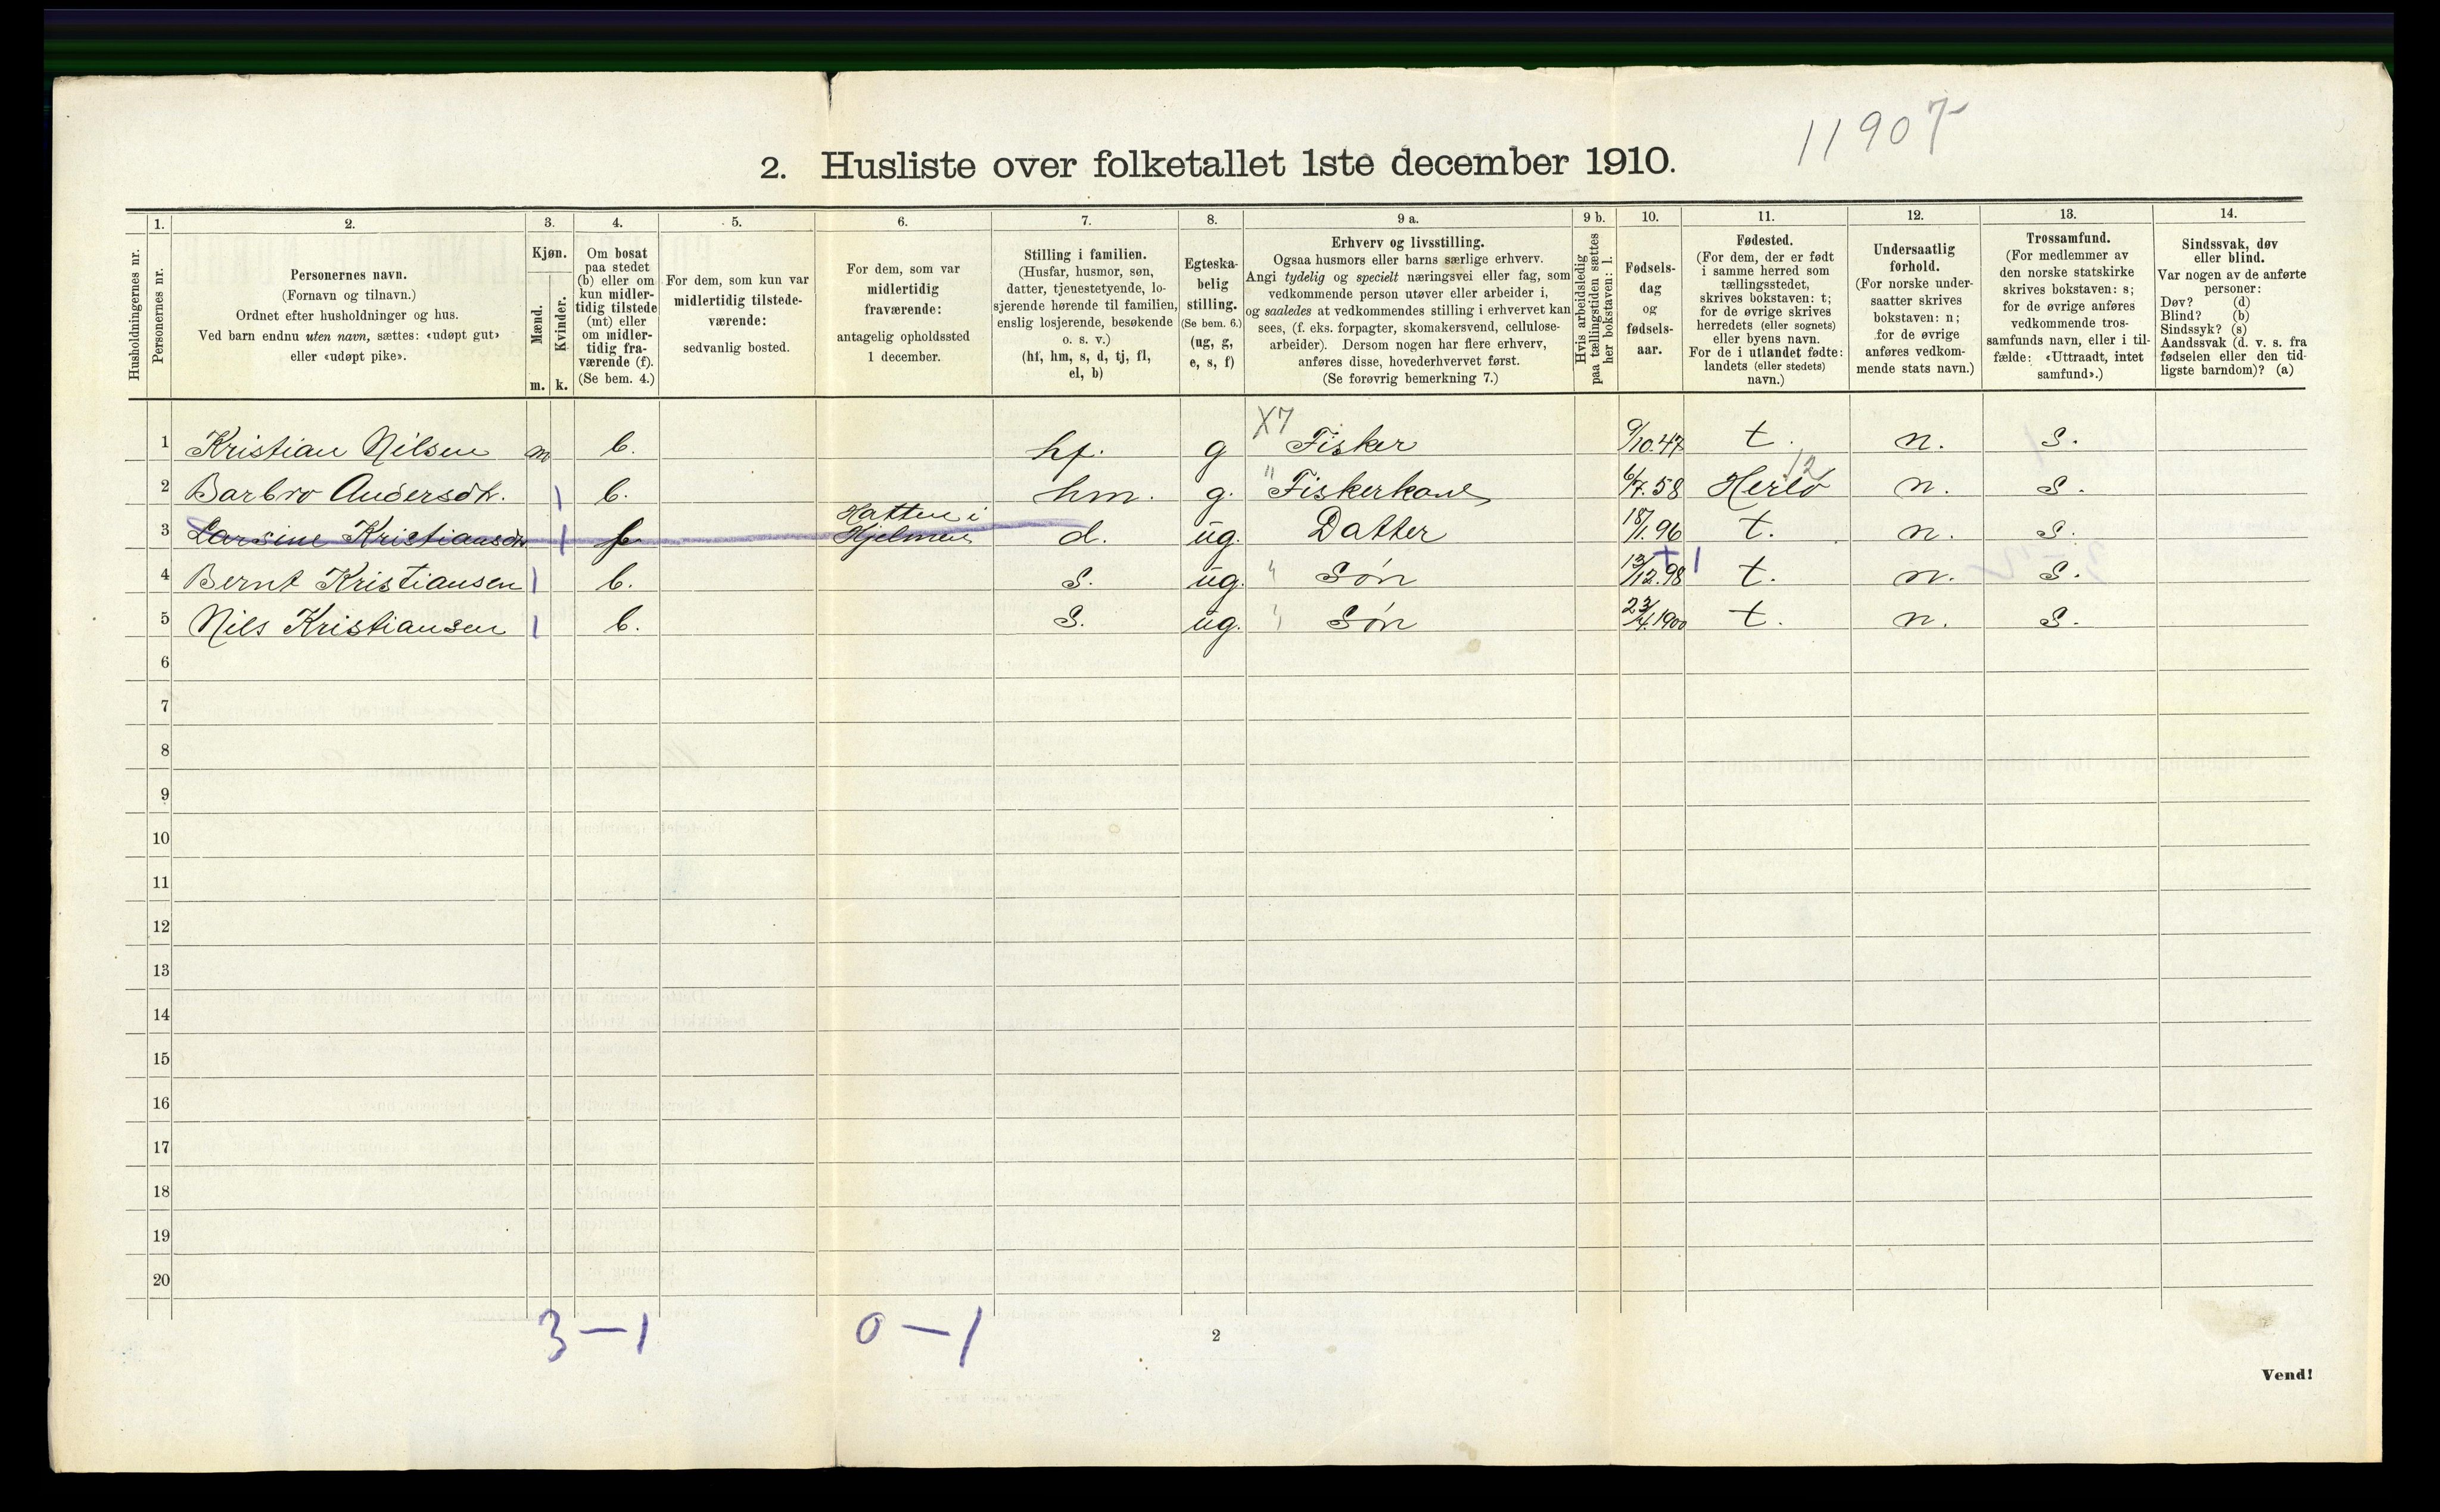 11907
2. Husliste over folketallet 1ste december 1910.
Husholdningernes nr.
1.
Personernes nr.
2.
Personernes navn.
(Fornavn og tilnavn.)
Ordnet efter husholdninger og hus.
Ved barn endnu uten navn, sættes: «udøpt gut»
eller «udøpt pike».
3.
Kjøn.
Mænd.
Kvinder.
m. k.
4.
Om bosat
paa stedet
(b) eller om
kun midler-
tidig tilstede
(mt) eller
om midler-
tidig fra-
værende (f).
(Se bem. 4.)
5.
For dem, som kun var
midlertidig tilstede-
værende:
sedvanlig bosted.
6.
For dem, som var
midlertidig
fraværende:
antagelig opholdssted
1 december.
7.
Stilling i familien.
(Husfar, husmor, søn,
datter, tjenestetyende, lo-
sjerende hørende til familien,
enslig losjerende, besøkende
o. s. v.)
(hf, hm, s, d, tj, fl,
el, b)
8.
Egteska-
belig
stilling.
(Se bem. 6.)
(ug, g,
e, s, f)
9 a.
Erhverv og livsstilling.
Ogsaa husmors eller barns særlige erhverv.
Angi tydelig og specielt næringsvei eller fag, som
vedkommende person utøver eller arbeider i,
og saaledes at vedkommendes stilling i erhvervet kan
sees, (f. eks. forpagter, skomakersvend, cellulose-
arbeider). Dersom nogen har flere erhverv,
anføres disse, hovederhvervet først.
(Se forøvrig bemerkning 7.)
9 b.
Hvis arbeidsledig
paa tællingstiden sættes
her bokstaven: l.
10.
Fødsels-
dag
og
fødsels-
aar.
11.
Fødested.
(For dem, der er født
i samme herred som
tællingsstedet,
skrives bokstaven: t;
for de øvrige skrives
herredets (eller sognets)
eller byens navn.
For de i utlandet fødte:
landets (eller stedets)
navn.)
12.
Undersaatlig
forhold.
(For norske under-
saatter skrives
bokstaven: n;
for de øvrige
anføres vedkom-
mende stats navn.)
13.
Trossamfund.
(For medlemmer av
den norske statskirke
skrives bokstaven: s;
for de øvrige anføres
vedkommende tros-
samfunds navn, eller i til-
fælde: «Uttraadt, intet
samfund».)
14.
Sindssvak, døv
eller blind.
Var nogen av de anførte
personer:
Døv? (d)
Blind? (b)
Sindssyk? (s)
Aandssvak (d. v. s. fra
fødselen eller den tid-
ligste barndom)? (a)
X7
1 Kristian Nilsen m b. hf. g Fisker 9/10.47 t. n. s.
12
2 Barbro Andersdtr. 1 b. hm. g. " Fiskerkone 6/7.58 Herlø n. s.
Hatten i
3 Larsine Kristiansdtr 1 f Hjelmen d. ug. Datter 18/1.96 t. n. s.
+ 1
4 Bernt Kristiansen 1 b. s. ug. " Søn 13/12.98 t. n. s.
5 Nils Kristiansen 1 b. s. ug. " Søn 23/4.1900 t. n. s.
6
7
8
9
10
11
12
13
14
15
16
17
18
19
20
3 — 1 0 — 1
2
Vend!